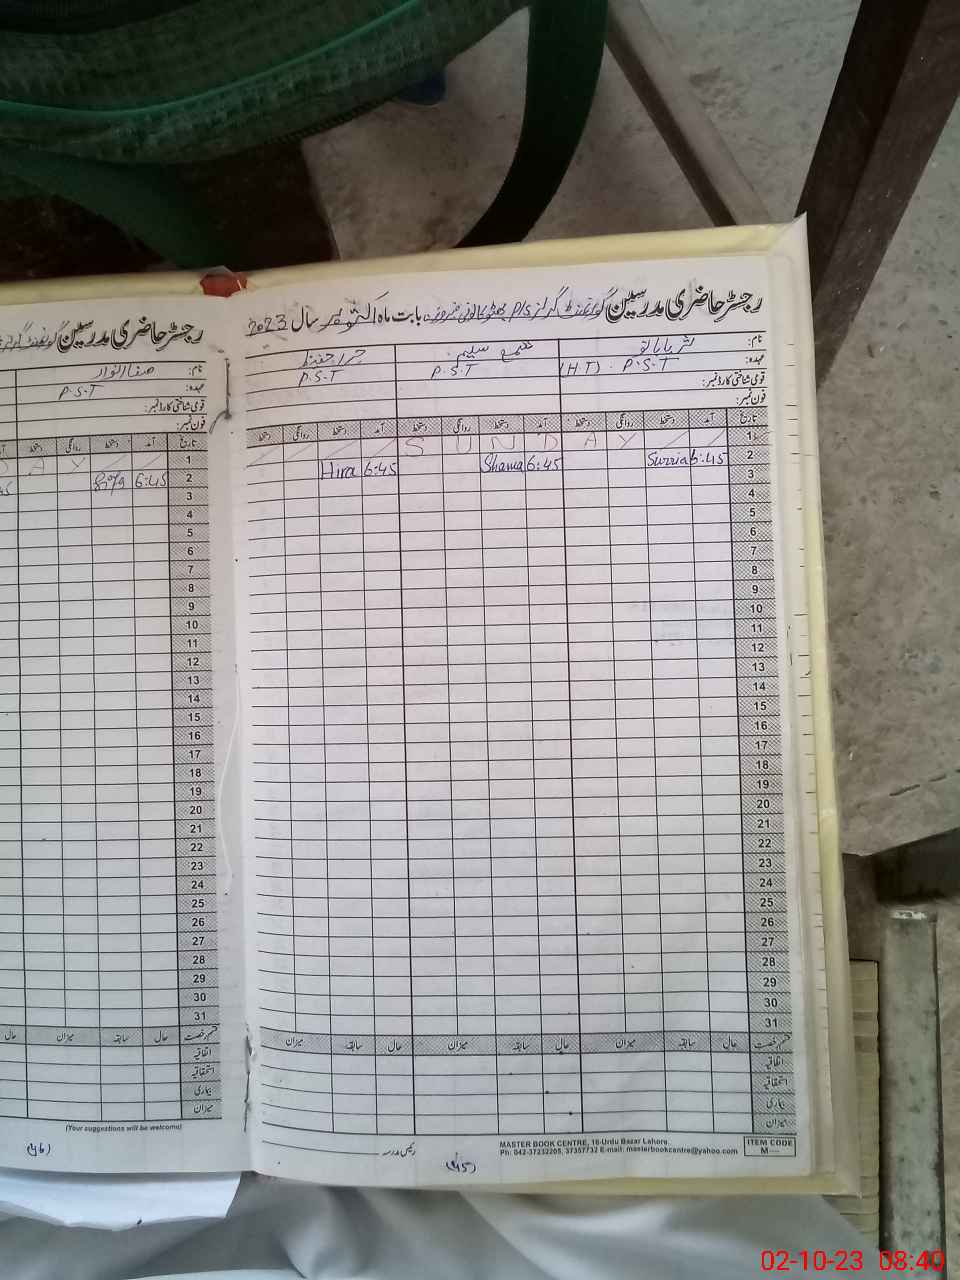 رجسٹر حاضری مدرسین گورنمنٹ گرلز P/S بھٹو کالونی بابت ماہ اکتوبر سال 2023
نام: ثریا بانو شمع سلیم حرا حفیظ
عہدہ: (H.T) . P.S.T P.S.T P.S.T
قومی شناختی کارڈ نمبر:
فون نمبر:
تاریخ آمد دستخط روانگی دستخط آمد دستخط روانگی دستخط آمد دستخط روانگی دستخط
1 S U N D A Y
2 6:45 Surria 6:45 Shama 6:45 Hira
3
4
5
6
7
8
9
10
11
12
13
14
15
16
17
18
19
20
21
22
23
24
25
26
27
28
29
30
31
قسم رخصت حال سابقہ میزان حال سابقہ میزان حال سابقہ میزان
اتفاقیہ
استحقاقیہ
بیماری
میزان
MASTER BOOK CENTRE, 16-Urdu Bazar Lahore.
Ph: 042-37232205, 37357732 E-mail: masterbookcentre@yahoo.com
ITEM CODE
M----
رئیس مدرسہ
(45)
رجسٹر حاضری مدرسین گورنمنٹ گرلز
نام: صفا انوار
عہدہ: P.S.T
قومی شناختی کارڈ نمبر:
فون نمبر:
تاریخ آمد دستخط روانگی دستخط
1 D A Y
2 6:45
3
4
5
6
7
8
9
10
11
12
13
14
15
16
17
18
19
20
21
22
23
24
25
26
27
28
29
30
31
قسم رخصت حال سابقہ میزان حال
اتفاقیہ
استحقاقیہ
بیماری
میزان
(Your suggestions will be welcome)
(46)
02-10-23 08:40